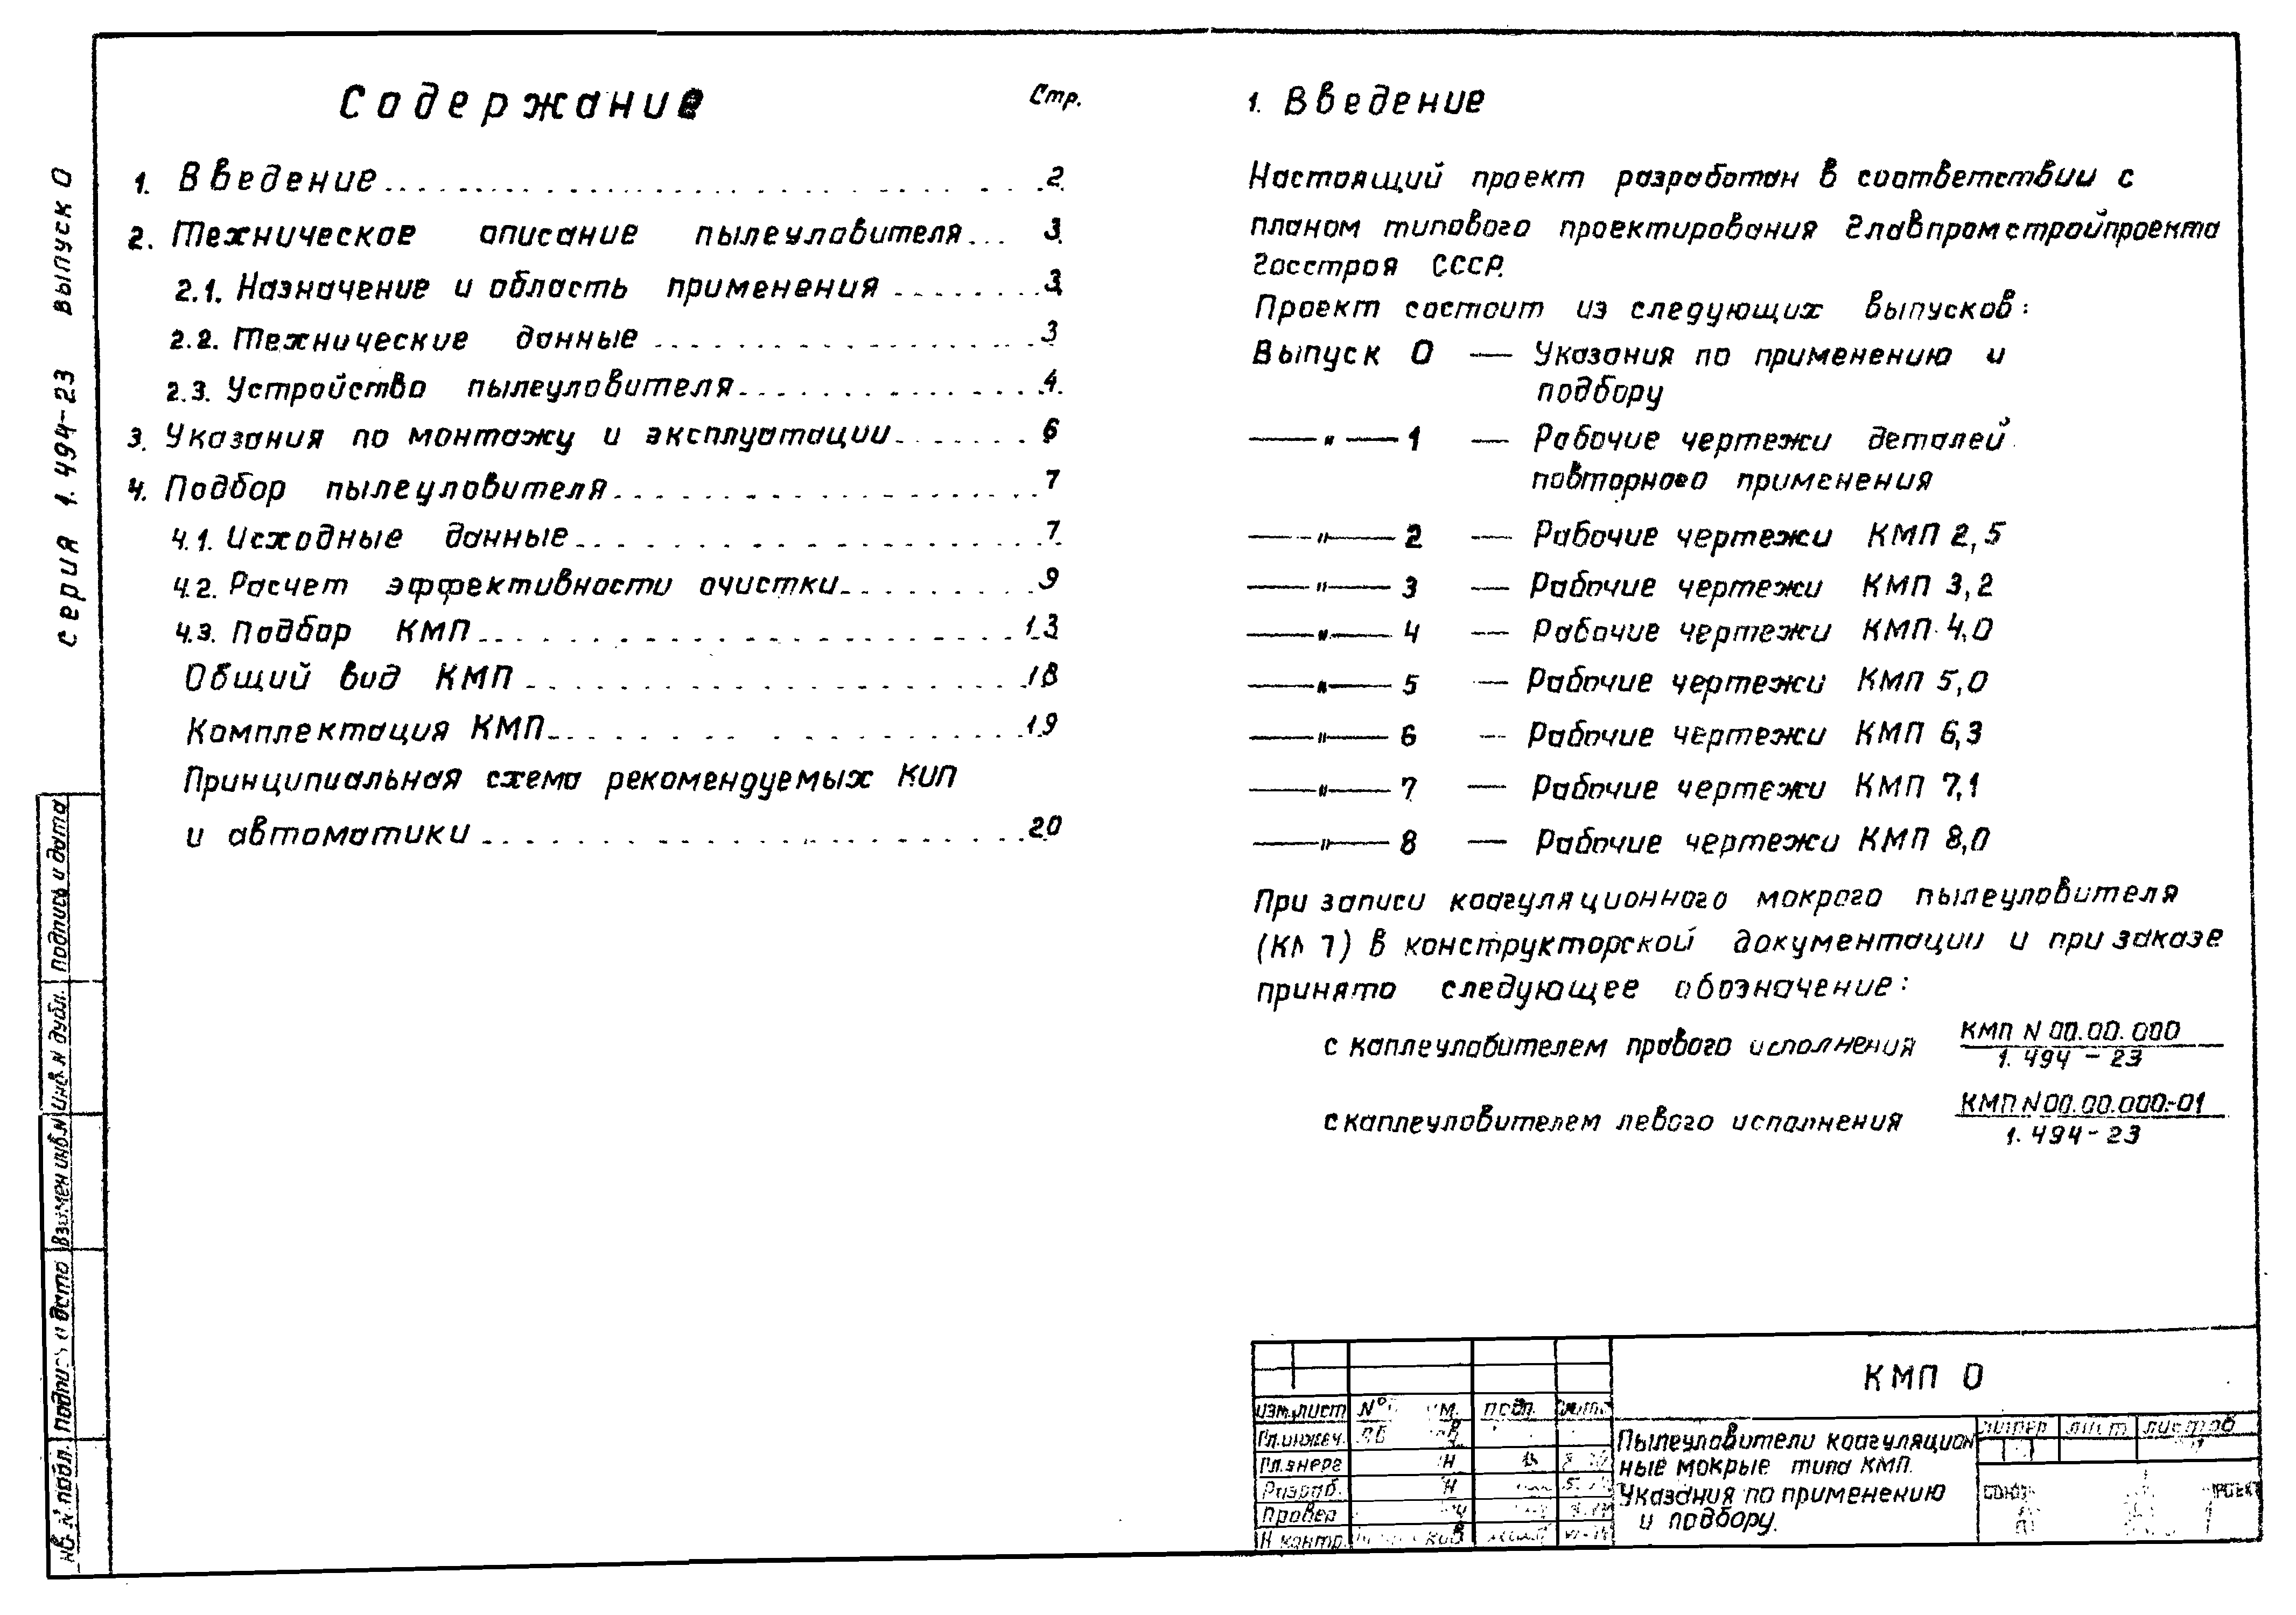 серия 1.494-23 выпуск 0
Содержание
Стр.
1. Введение 2
2. Техническое описание пылеуловителя... 3
2.1. Назначение и область применения 3
2.2. Технические данные 3
2.3. Устройство пылеуловителя 4
3. Указания по монтажу и эксплуатации 6
4. Подбор пылеуловителя 7
4.1. Исходные данные 7
4.2. Расчет эффективности очистки 9
4.3. Подбор КМП 13
Общий вид КМП 18
Комплектация КМП 19
Принципиальная схема рекомендуемых КИП
и автоматики 20
1. Введение
Настоящий проект разработан в соответствии с
планом типового проектирования Главпромстройпроекта
Госстроя СССР.
Проект состоит из следующих выпусков:
Выпуск 0 — Указания по применению и
подбору
—"— 1 — Рабочие чертежи деталей
повторного применения
—"— 2 — Рабочие чертежи КМП 2,5
—"— 3 — Рабочие чертежи КМП 3,2
—"— 4 — Рабочие чертежи КМП 4,0
—"— 5 — Рабочие чертежи КМП 5,0
—"— 6 — Рабочие чертежи КМП 6,3
—"— 7 — Рабочие чертежи КМП 7,1
—"— 8 — Рабочие чертежи КМП 8,0
При записи коагуляционного мокрого пылеуловителя
(КМП) в конструкторской документации и при заказе
принято следующее обозначение:
с каплеуловителем правого исполнения КМП N 00.00.000
1.494-23
с каплеуловителем левого исполнения КМП N 00.00.000-01
1.494-23
КМП 0
Изм. лист подп.
Гл. инжен.
Гл. энерг
Разраб.
Провер
Н контр.
Пылеуловители коагуляцион
ные мокрые типа КМП.
Указания по применению
и подбору.
литер лист листов
Подпись и дата
Инв. N дубл.
Взамен инв. N
Подпись и дата
Инв. N подл.